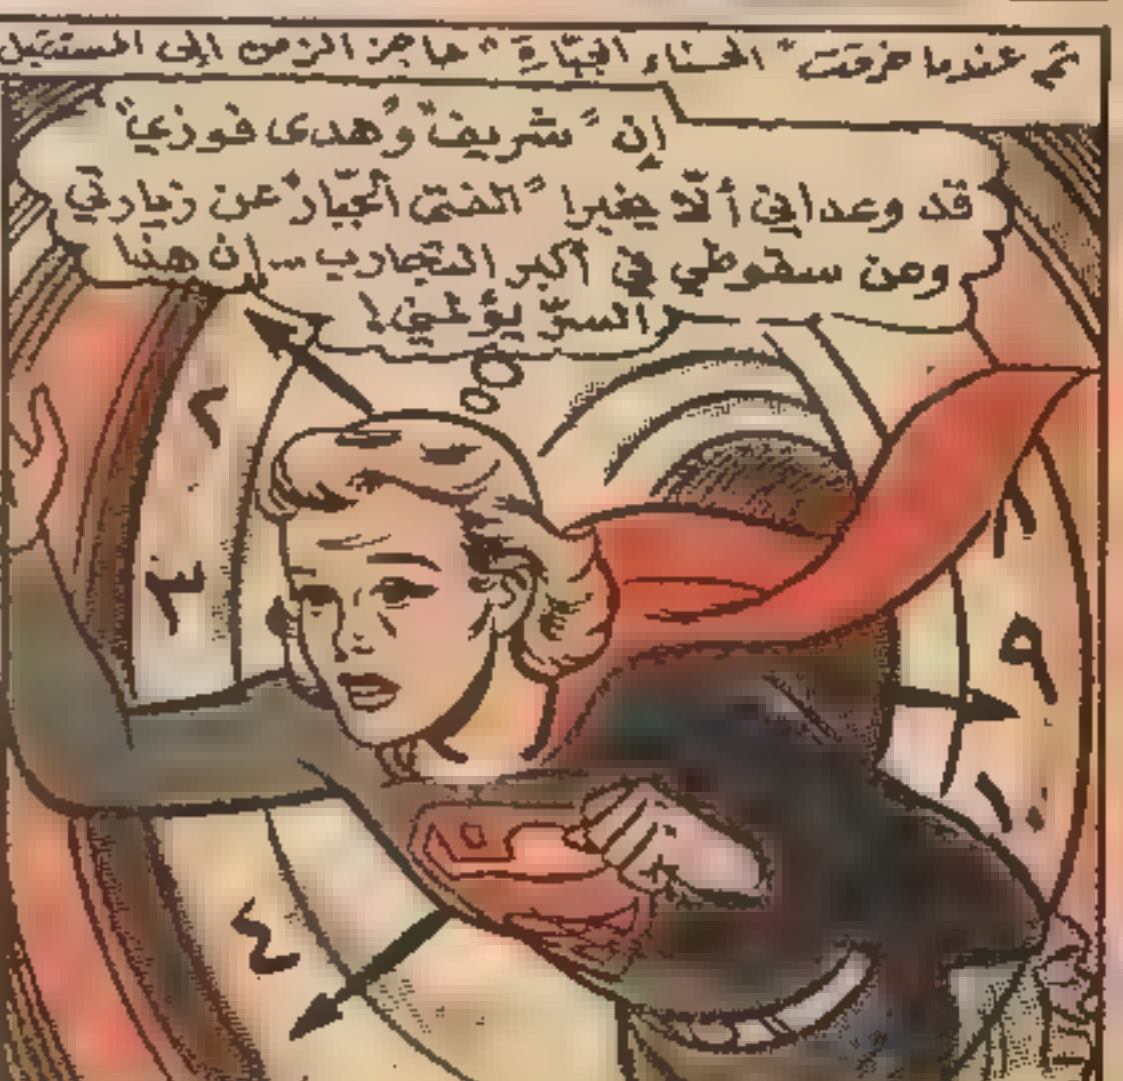 ثم عندما خرقت "الحسناء الجبّارة" حاجز الزمن إلى المستقبل
إن "شريف" و"هدى فوزي"
قد وعداني ألّا يخبرا "الفتى الجبّار" عن زيارتي
ومن سقوطي في أكبر التجارب ... إن هذا
السرّ يؤلمني!
٢
٣
٤
٩
١٠